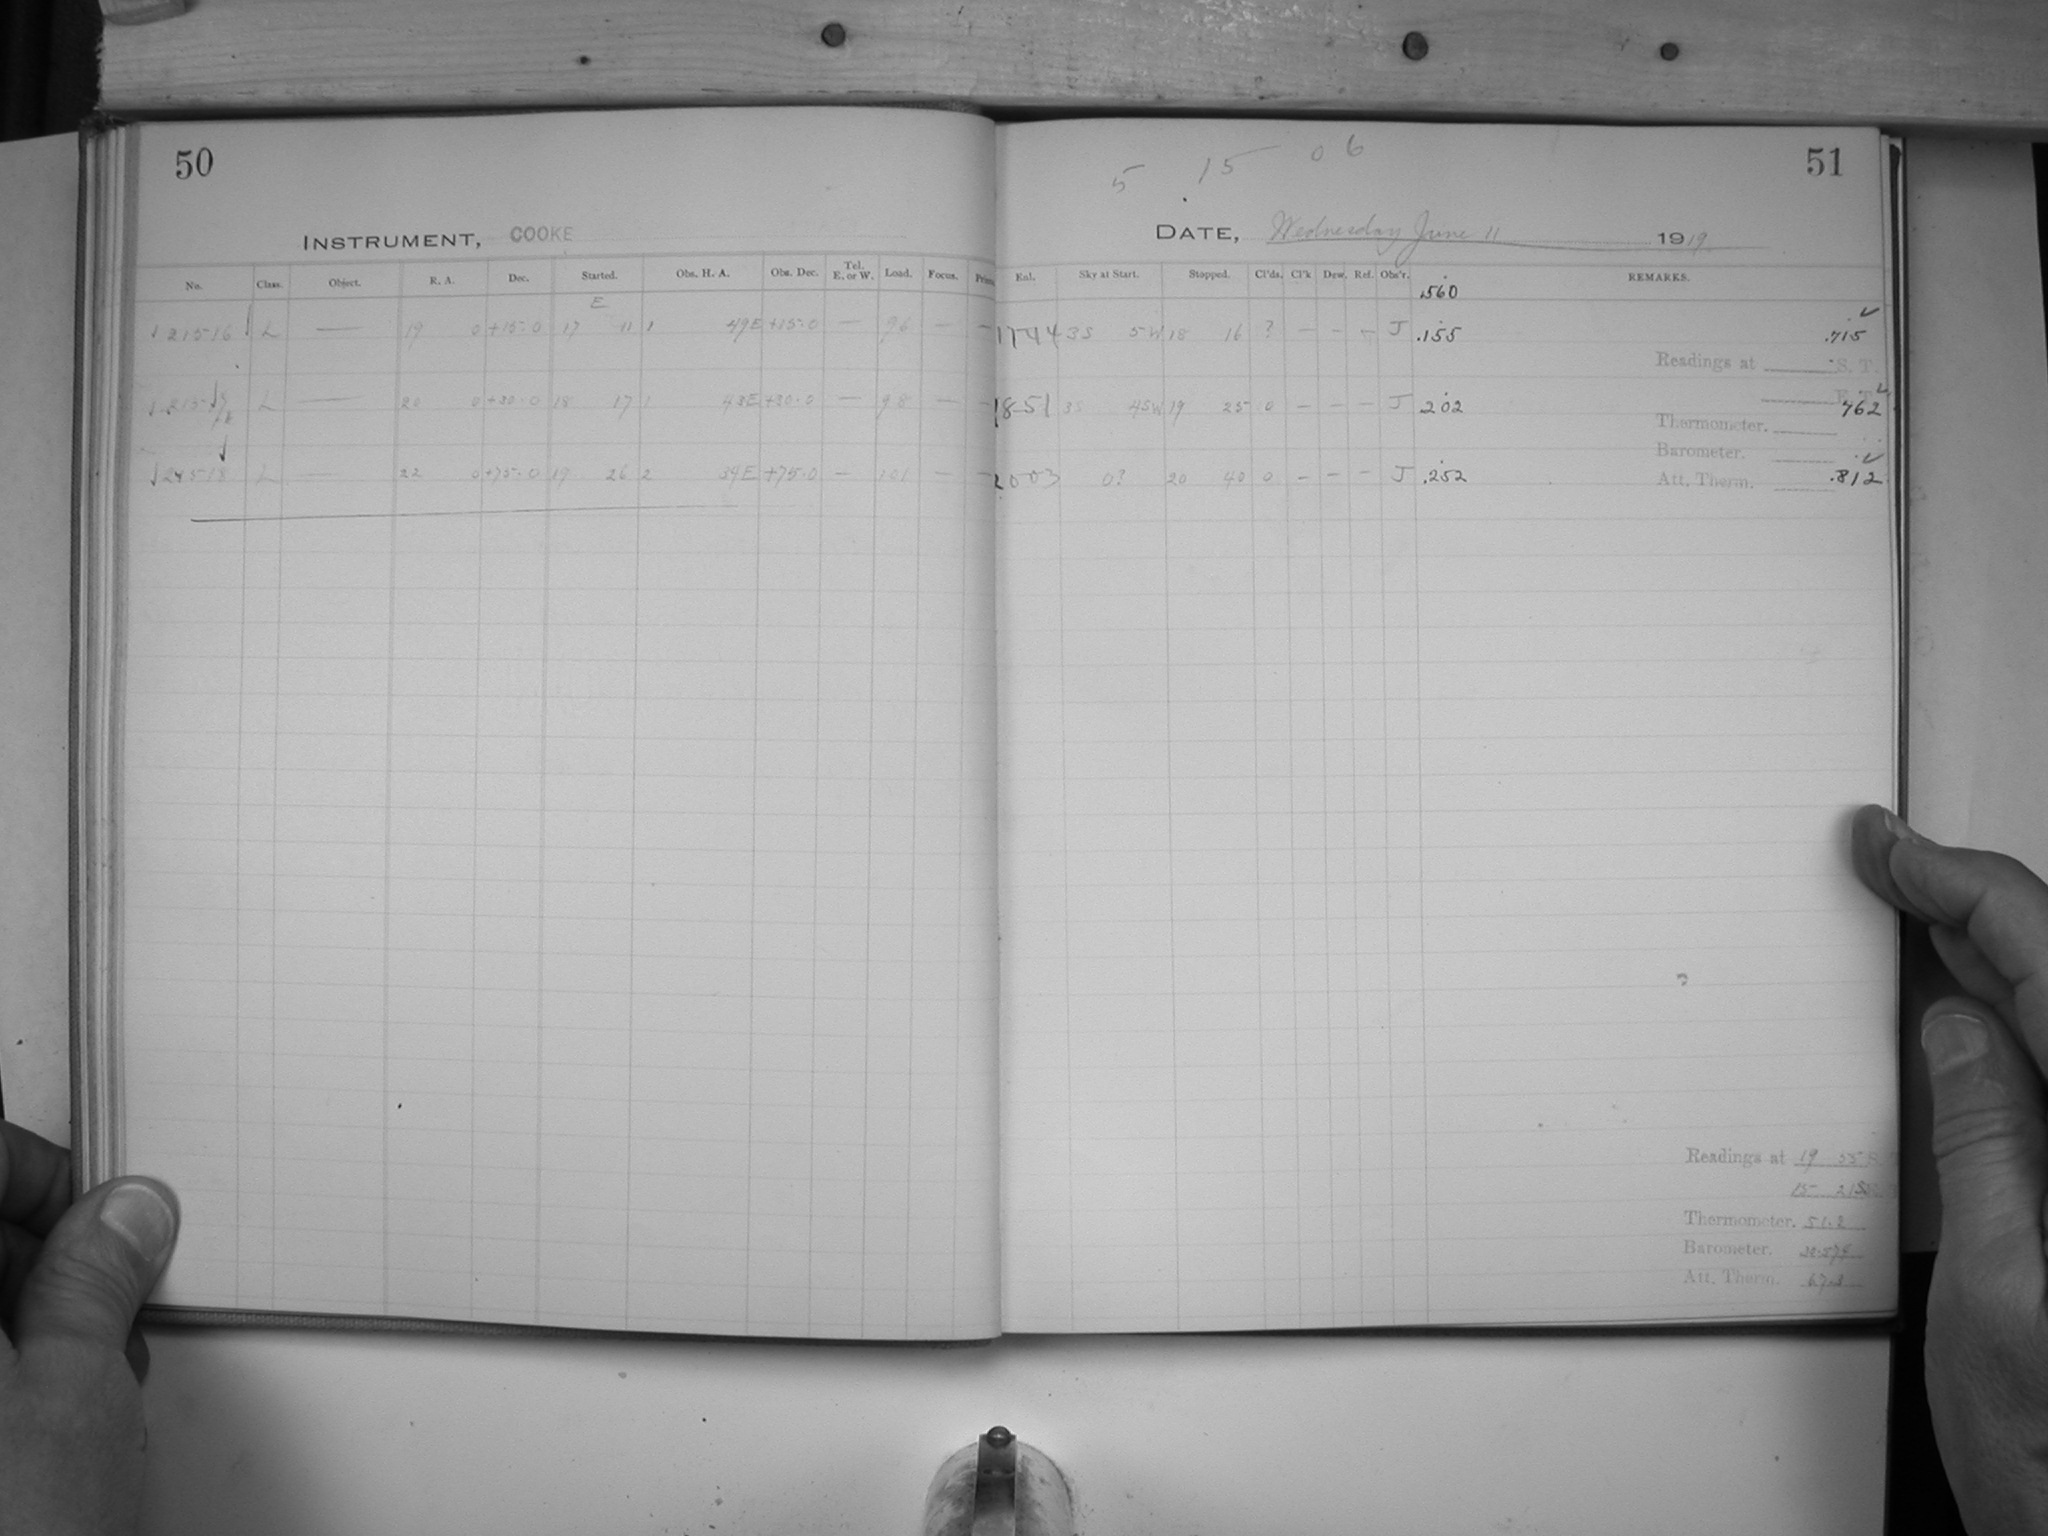 50
INSTRUMENT, COOKE
No. Class. Object. R. A. Dec. Started. Obs. H. A. Obs. Dec. Tel. E. or W. Load. Focus.
E
21516 L — 19 0 +15.0 17 11 1 49E +15.0 — 96 — —
L — 20 0 +30.0 18 17 1 43E +30.0 — 98 — —
21518 L — 22 0 +75.0 19 26 2 34E +75.0 — 101 — —
5 15 06
51
DATE, Wednesday June 11 1919
Exl. Sky at Start. Stopped. Cl'ds. Cl'k Dew. Ref. Obs'r. REMARKS.
.560
1744 3S 5W 18 16 ? — — — J .155 .715
Readings at S. T.
1851 3S 45W 19 25 0 — — — J 202 762
Thermometer.
Barometer.
2003 0? 20 40 0 — — — J .252 .812
Att. Therm.
Readings at 19 35
15 21
Thermometer. 51.2
Barometer.
Att. Therm.